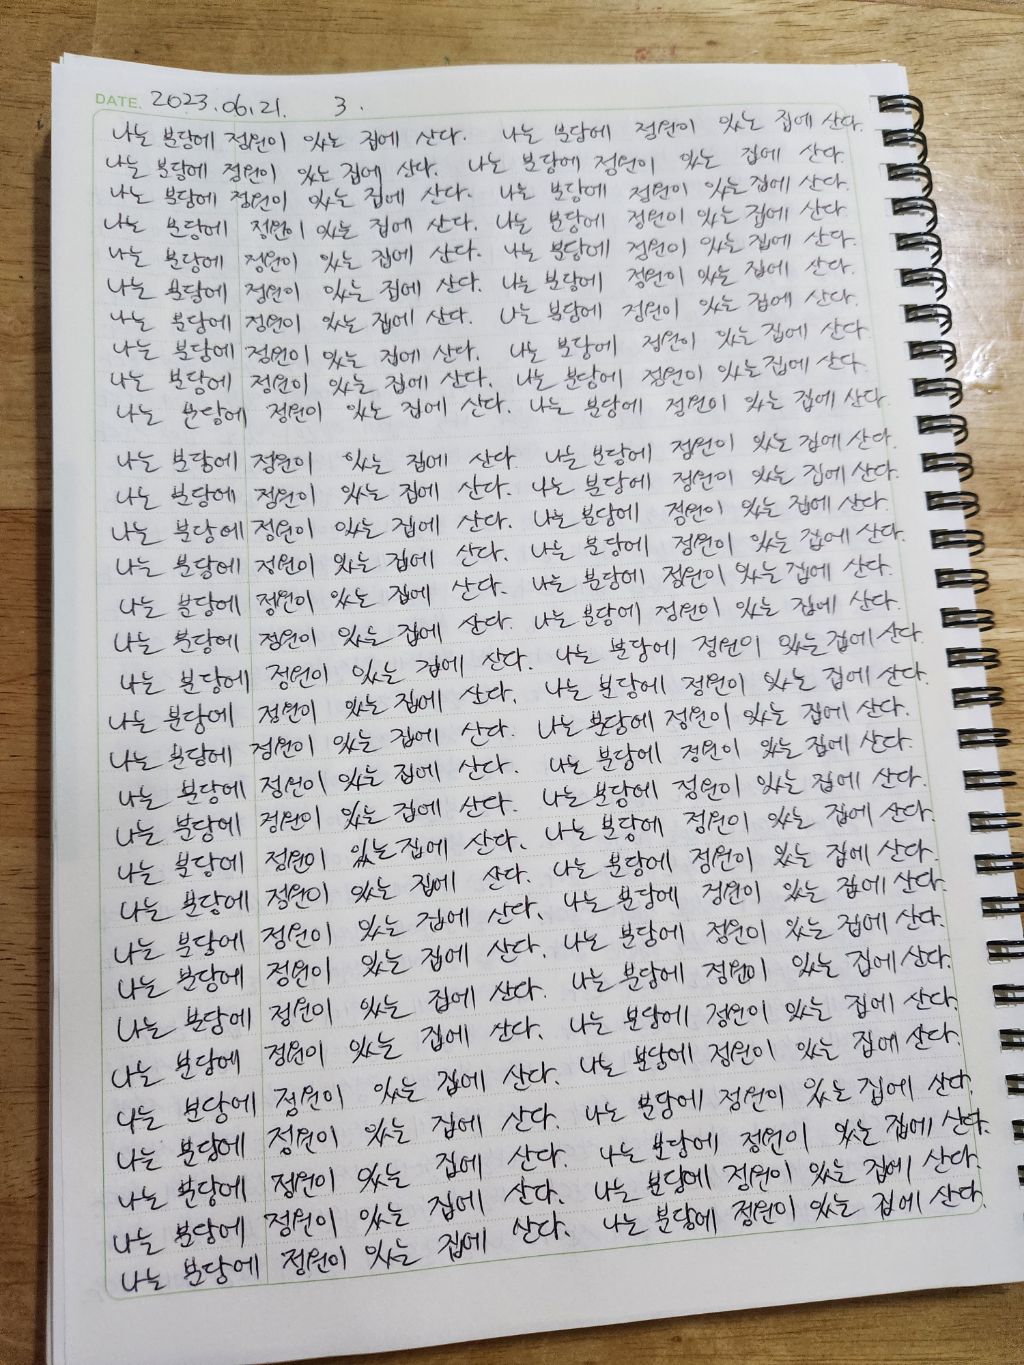 DATE. 2023.06.21. 3.
나는 분당에 정원이 있는 집에 산다. 나는 분당에 정원이 있는 집에 산다.
나는 분당에 정원이 있는 집에 산다. 나는 분당에 정원이 있는 집에 산다.
나는 분당에 정원이 있는 집에 산다. 나는 분당에 정원이 있는 집에 산다.
나는 분당에 정원이 있는 집에 산다. 나는 분당에 정원이 있는 집에 산다
나는 분당에 정원이 있는 집에 산다. 나는 분당에 정원이 있는 집에 산다.
나는 분당에 정원이 있는 집에 산다. 나는 분당에 정원이 있는 집에 산다.
나는 분당에 정원이 있는 집에 산다. 나는 분당에 정원이 있는 집에 산다.
나는 분당에 정원이 있는 집에 산다. 나는 분당에 정원이 있는 집에 산다.
나는 분당에 정원이 있는 집에 산다. 나는 분당에 정원이 있는 집에 산다.
나는 분당에 정원이 있는 집에 산다. 나는 분당에 정원이 있는 집에 산다.
나는 분당에 정원이 있는 집에 산다. 나는 분당에 정원이 있는 집에 산다.
나는 분당에 정원이 있는 집에 산다. 나는 분당에 정원이 있는 집에 산다.
나는 분당에 정원이 있는 집에 산다. 나는 분당에 정원이 있는 집에 산다.
나는 분당에 정원이 있는 집에 산다. 나는 분당에 정원이 있는 집에 산다.
나는 분당에 정원이 있는 집에 산다. 나는 분당에 정원이 있는 집에 산다.
나는 분당에 정원이 있는 집에 산다. 나는 분당에 정원이 있는 집에 산다.
나는 분당에 정원이 있는 집에 산다. 나는 분당에 정원이 있는 집에 산다.
나는 분당에 정원이 있는 집에 산다. 나는 분당에 정원이 있는 집에 산다.
나는 분당에 정원이 있는 집에 산다. 나는 분당에 정원이 있는 집에 산다.
나는 분당에 정원이 있는 집에 산다. 나는 분당에 정원이 있는 집에 산다.
나는 분당에 정원이 있는 집에 산다. 나는 분당에 정원이 있는 집에 산다.
나는 분당에 정원이 있는 집에 산다. 나는 분당에 정원이 있는 집에 산다.
나는 분당에 정원이 있는 집에 산다. 나는 분당에 정원이 있는 집에 산다.
나는 분당에 정원이 있는 집에 산다. 나는 분당에 정원이 있는 집에 산다.
나는 분당에 정원이 있는 집에 산다. 나는 분당에 정원이 있는 집에 산다.
나는 분당에 정원이 있는 집에 산다. 나는 분당에 정원이 있는 집에 산다.
나는 분당에 정원이 있는 집에 산다. 나는 분당에 정원이 있는 집에 산다.
나는 분당에 정원이 있는 집에 산다. 나는 분당에 정원이 있는 집에 산다.
나는 분당에 정원이 있는 집에 산다. 나는 분당에 정원이 있는 집에 산다.
나는 분당에 정원이 있는 집에 산다. 나는 분당에 정원이 있는 집에 산다.
나는 분당에 정원이 있는 집에 산다. 나는 분당에 정원이 있는 집에 산다.
나는 분당에 정원이 있는 집에 산다. 나는 분당에 정원이 있는 집에 산다.